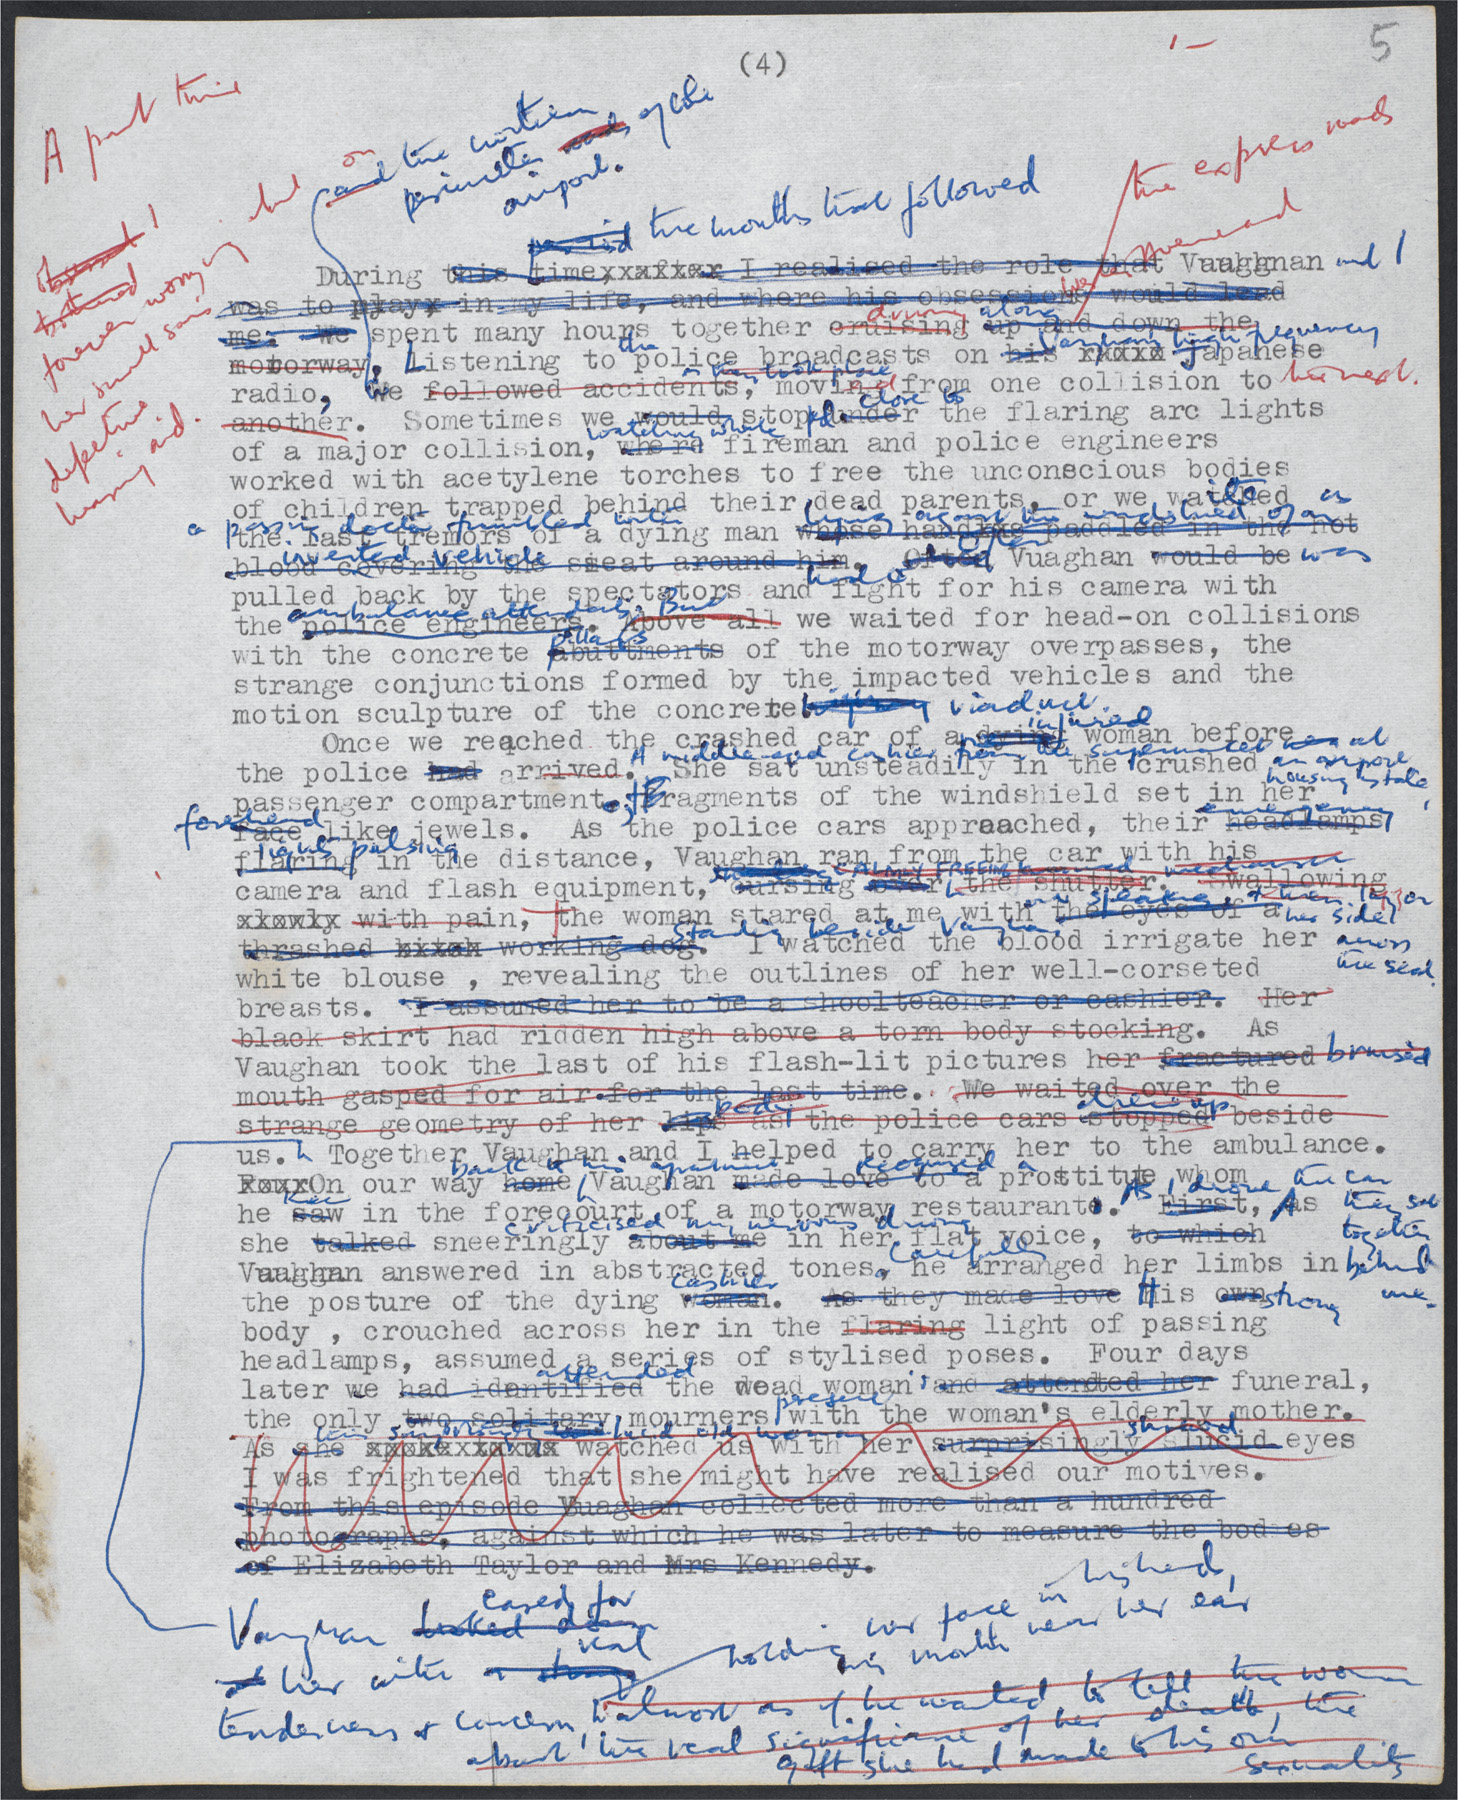 (4)
5
A part time
and the northern
on
perimeter roads of the
airport.
the express roads
the months that followed
During this time, I realised the role that Vaughan and I
was to play in my life, and where his obsessions would lead
me. We spent many hours together cruising up and down the
driving along
motorway. Listening to police broadcasts on his Japanese
the
Vaughan's high frequency
radio, We followed accidents, moving from one collision to
as they took place
the next.
another. Sometimes we would stop under the flaring arc lights
close to
of a major collision, where fireman and police engineers
watching while
worked with acetylene torches to free the unconscious bodies
of children trapped behind their dead parents, or we watched
a passing doctor fumbled with
the last tremors of a dying man whose hands paddled in the hot
lying against the windshield of an
inverted vehicle
blood covering the seat around him. Often Vuaghan would be was
pulled back by the spectators and fight for his camera with
had to
the police engineers. Above all we waited for head-on collisions
ambulance attendants. But
with the concrete abuttments of the motorway overpasses, the
pillars
strange conjunctions formed by the impacted vehicles and the
motion sculpture of the concrete viaduct.
Once we reached the crashed car of a dying woman before
injured
A middle-aged cashier from the supermarket
the police had arrived. She sat unsteadily in the crushed
an airport
housing estate,
passenger compartment, fragments of the windshield set in her
forehead
face like jewels. As the police cars appraached, their headlamps
emergency
lights pulsing
flaring in the distance, Vaughan ran from the car with his
camera and flash equipment, cursing over the shutter. Swallowing
with pain, the woman stared at me with the eyes of a
thrashed working dog. I watched the blood irrigate her
Standing beside Vaughan
her side
across
the seat.
white blouse , revealing the outlines of her well-corseted
breasts. I assumed her to be a shoolteacher or cashier. Her
black skirt had ridden high above a torn body stocking. As
Vaughan took the last of his flash-lit pictures her fractured bruised
mouth gasped for air for the last time. We waited over the
strange geometry of her lips as the police cars stopped beside
body
drew up
us. Together Vaughan and I helped to carry her to the ambulance.
On our way home Vaughan made love to a prostitute whom
back to his apartment
recognised a
he saw in the forecourt of a motorway restaurant. First, As
As I drove the car
they sat
she talked sneeringly about me in her flat voice, to which
criticised my nervous driving
together
Vaughan answered in abstracted tones, he arranged her limbs in behind
carefully
me.
the posture of the dying woman. As they made love His own
cashier
strong
body , crouched across her in the flaring light of passing
headlamps, assumed a series of stylised poses. Four days
later we had identified the dead woman's and attended her funeral,
attended
the only two solitary mourners with the woman's elderly mother.
present
As she watched us with her surprisingly slucid eyes
shrewd
I was frightened that she might have realised our motives.
From this episode Vuaghan collected more than a hundred
photographs, against which he was later to measure the bodies
of Elizabeth Taylor and Mrs Kennedy.
forever worrying
her small son's
defective
hearing aid.
Vaughan looked down
cared for
her with a strong
real
holding her face in his hands,
his mouth near her ear
tenderness & concern, almost as if he wanted to tell the woman
about the real significance of her death, the
gift she had made to his own
sexuality